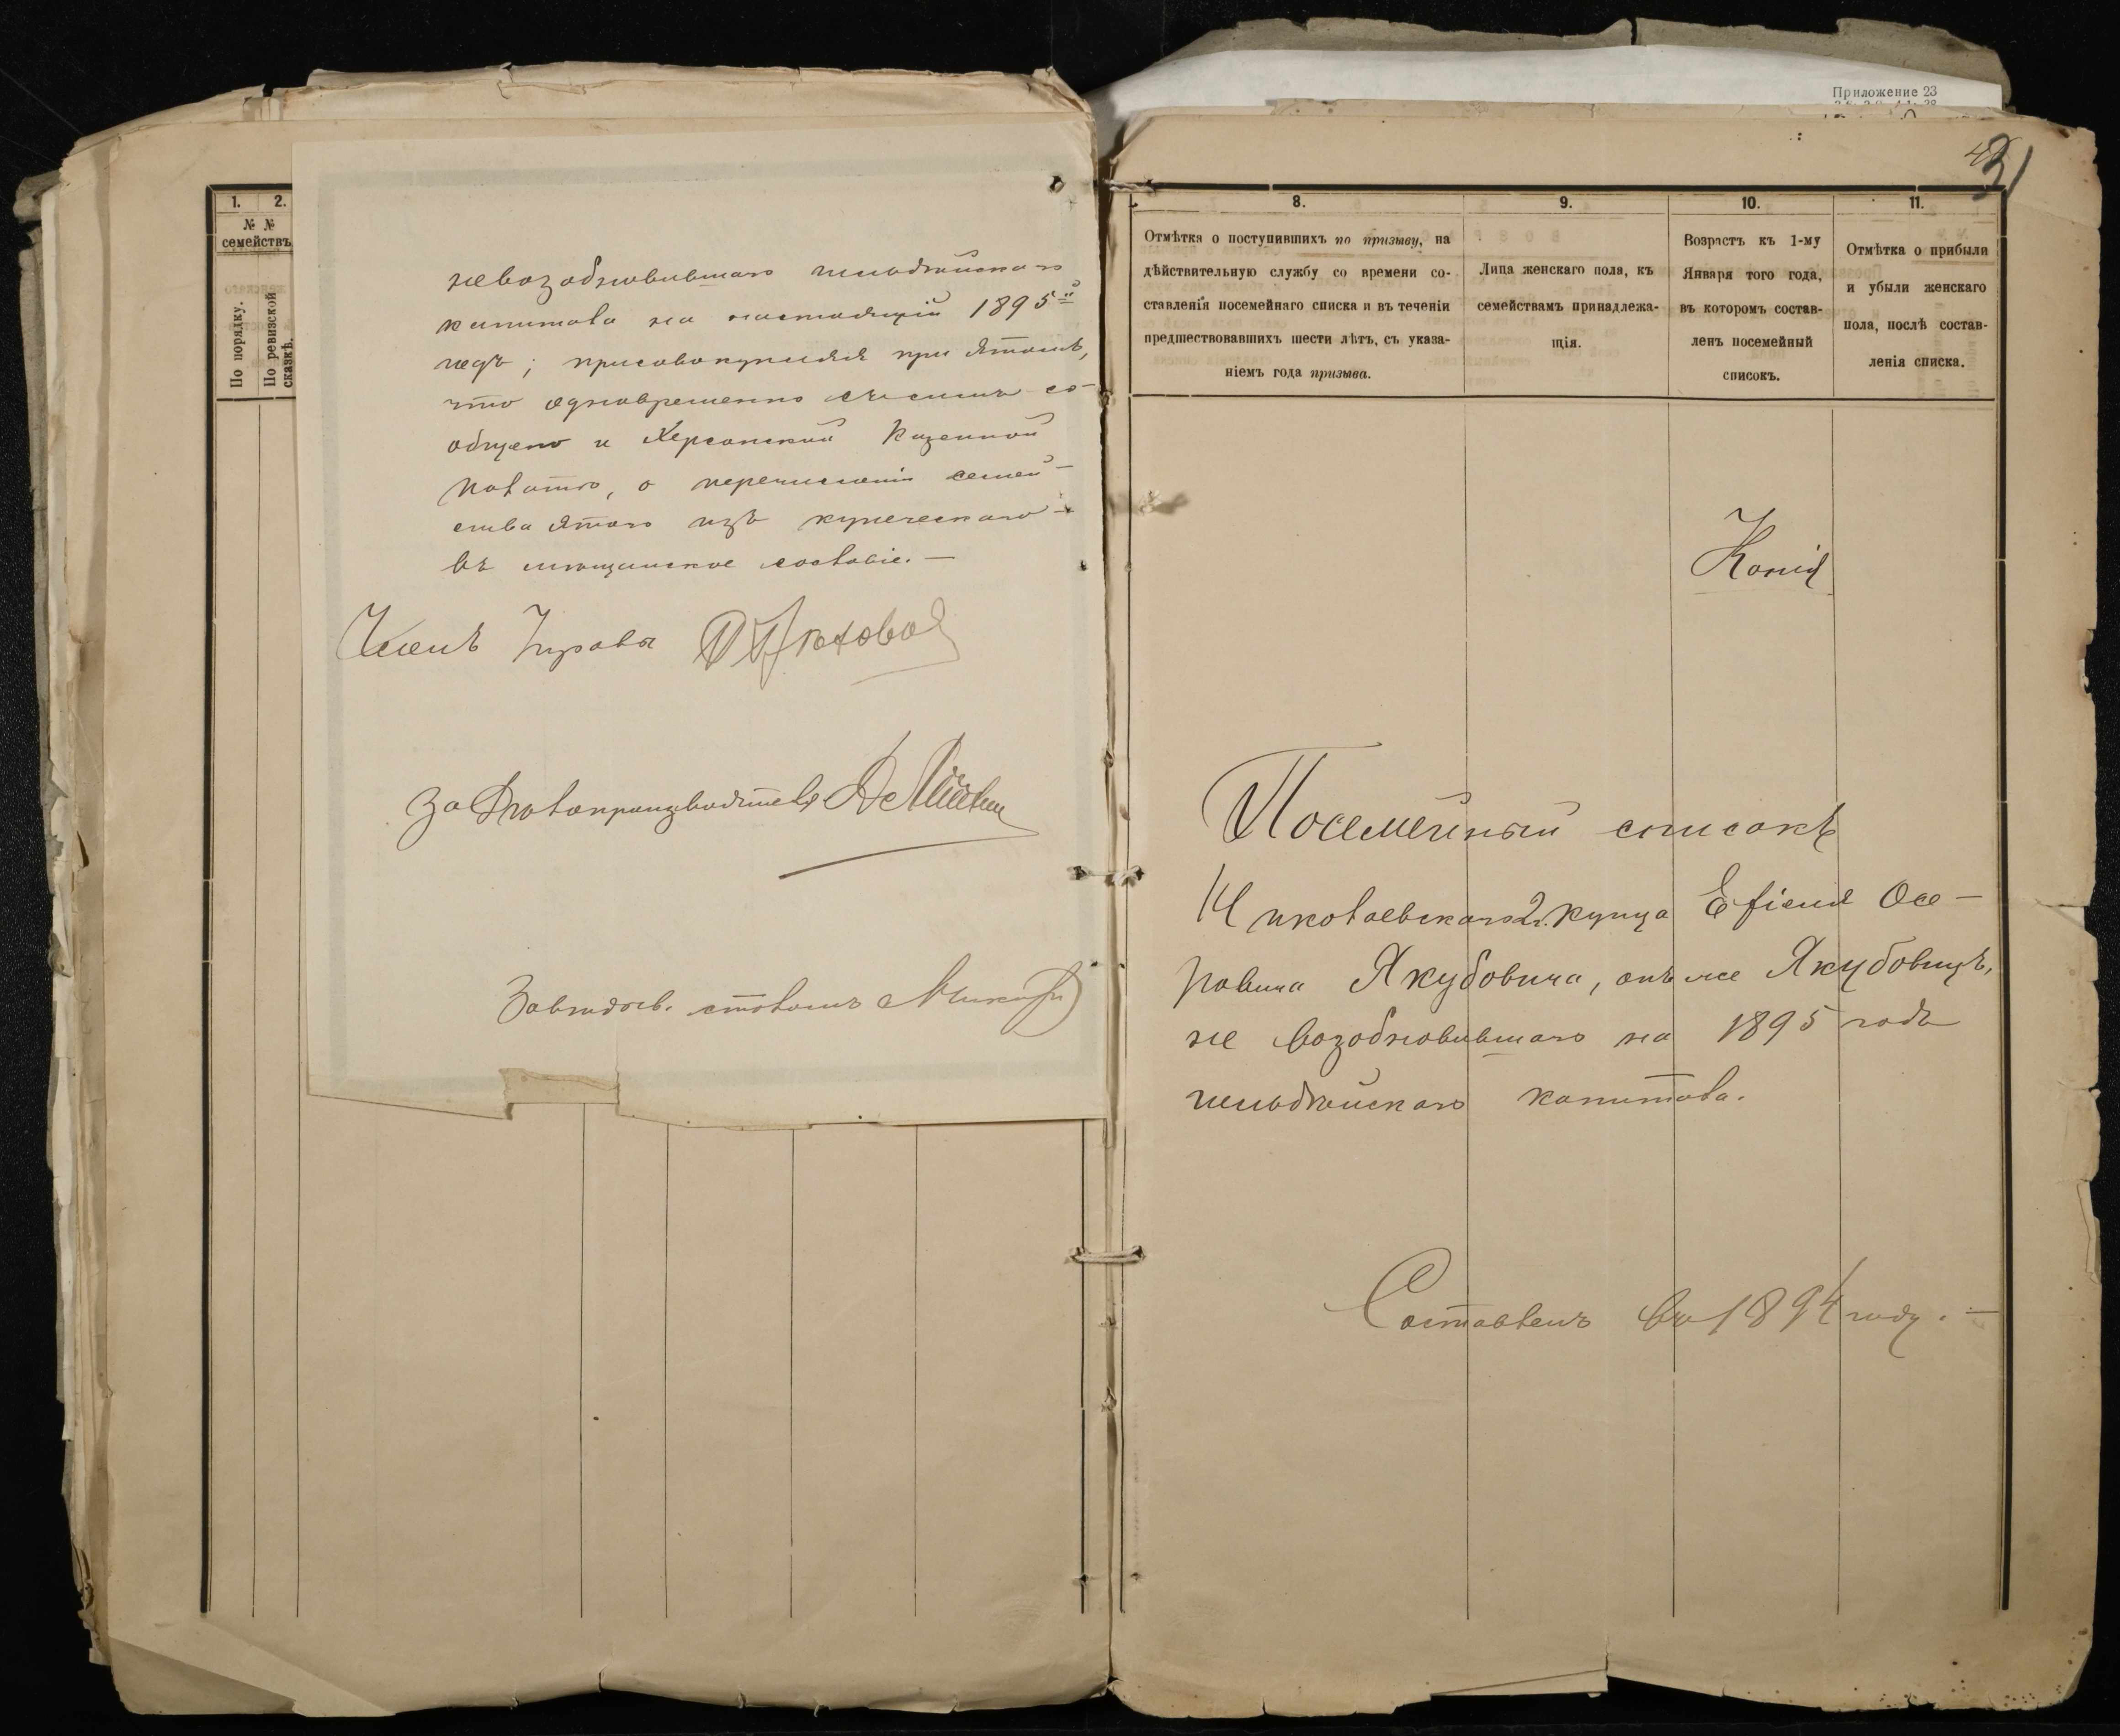 1.
2.
№ №
семействъ
По порядку.
По ревизской
сказкѣ.
невозобновившаго гильдейскаго
капитала на настоящій 1895й
годъ; присовокупляя при этомъ,
что одновременно съ симъ со-
общено и Херсонской Казенной
Палатѣ, о перечисленіи семей-
ства этого изъ купеческаго
въ мѣщанское сословіе. —
Членъ Управы
За Дѣлопроизводителя
Завѣдыв. столомъ
Приложение 23
31
8.
9.
10.
11.
Отмѣтка о поступившихъ по призыву, на
дѣйствительную службу со времени со-
ставленія посемейнаго списка и въ теченіи
предшествовавшихъ шести лѣтъ, съ указа-
ніемъ года призыва.
Лица женскаго пола, къ
семействамъ принадлежа-
щія.
Возрастъ къ 1-му
Января того года,
въ которомъ состав-
ленъ посемейный
списокъ.
Отмѣтка о прибыли
и убыли женскаго
пола, послѣ состав-
ленія списка.
Копія
Посемейный списокъ
Николаевскаго 2г. купца Ефіеля Осе-
ровича Якубовича, онъ же Якубовицъ,
не возобновившаго на 1895 годъ
гильдейскаго капитала.
Составленъ въ 1894 году. —